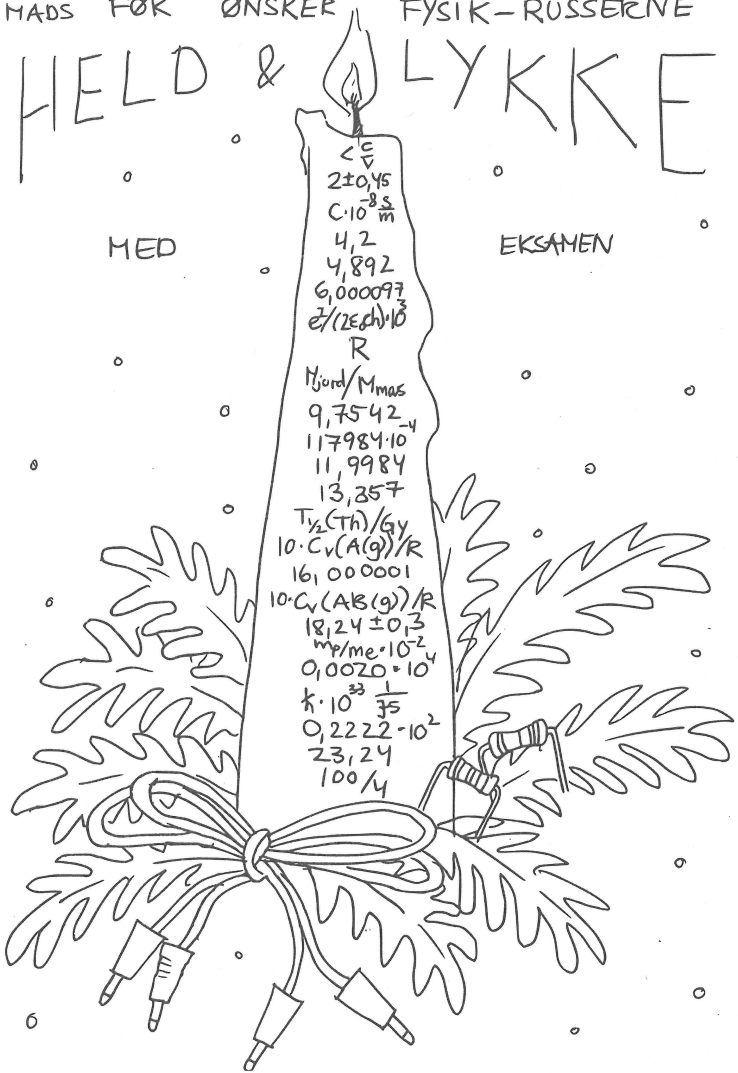 MADS FØK ØNSKER FYSIK-RUSSERNE
HELD & LYKKE
MED EKSAMEN
< c/v
2±0,45
C·10⁻⁸ s/m
4,2
4,892
6,000097
e²/(2ε₀ch)·10³
R
Mjord/Mmas
9,7542
117984·10⁻⁴
11,9984
13,357
T½(Th)/Gy
10·Cv(A(g))/R
16,000001
10·Cv(AB(g))/R
18,24±0,3
mp/me·10⁻²
0,0020·10⁴
ħ·10³³ 1/Js
0,2222·10²
23,24
100/4